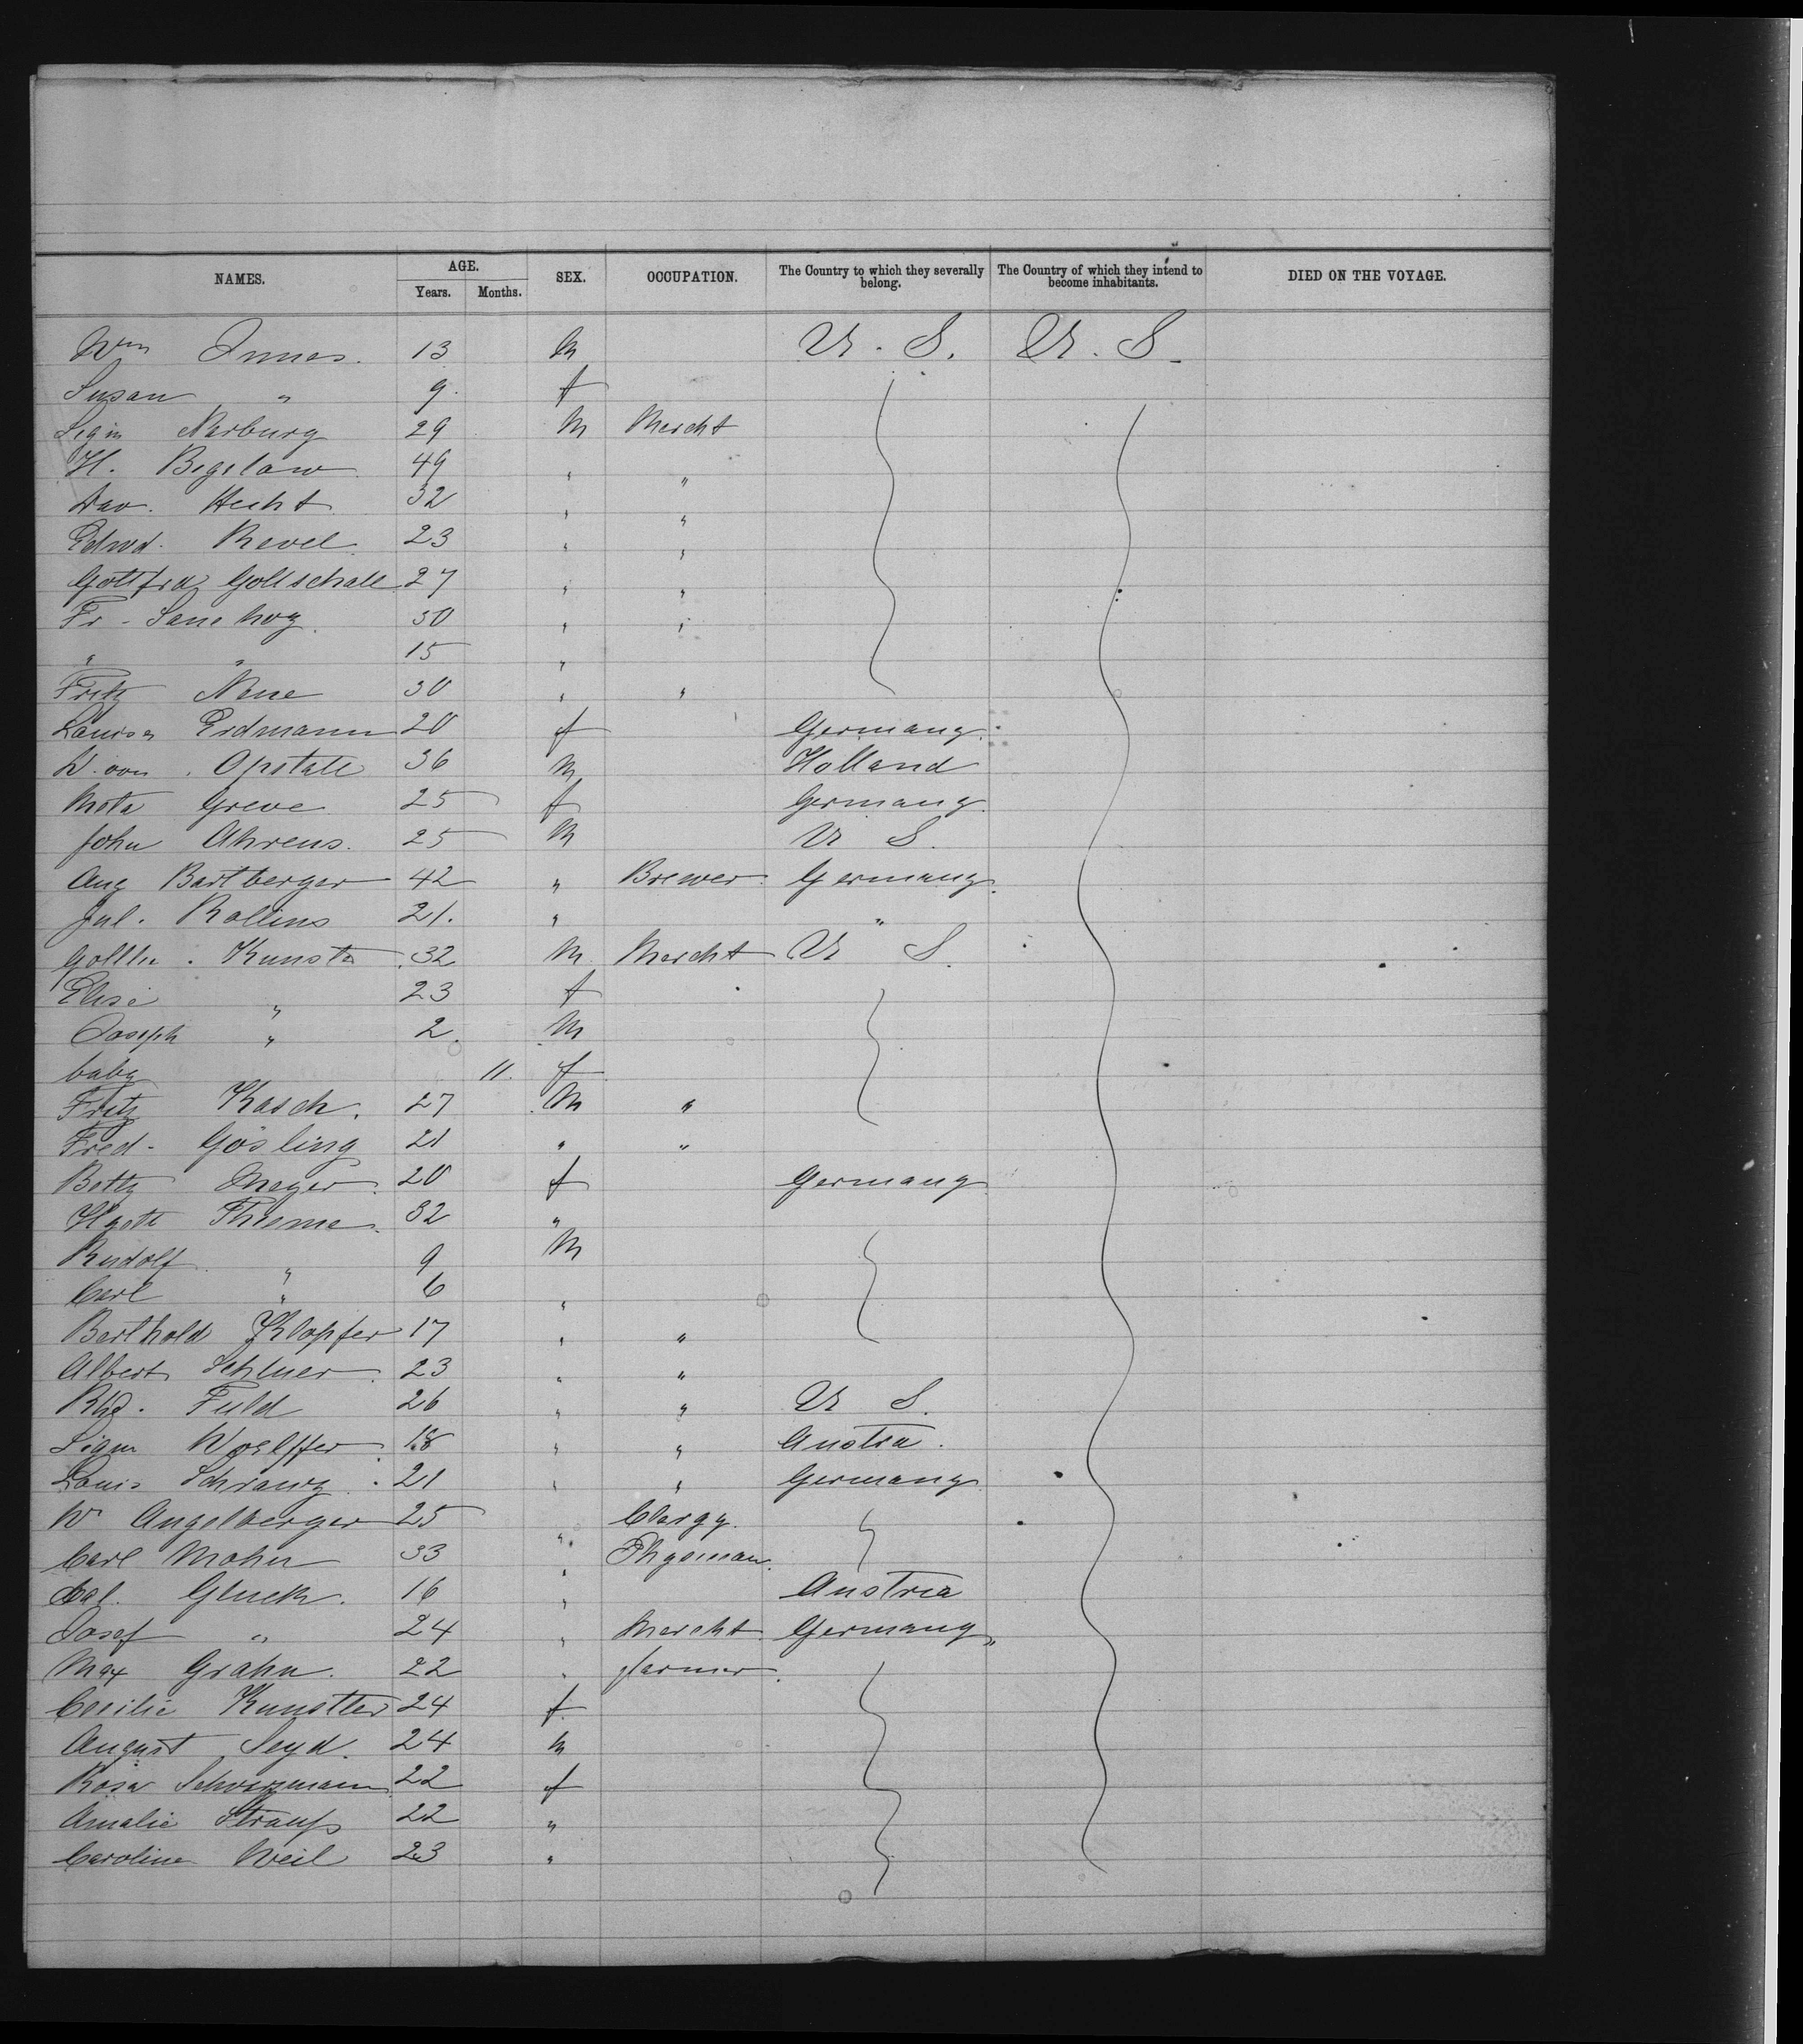 NAMES. AGE. SEX. OCCUPATION. The Country to which they severally belong. The Country of which they intend to become inhabitants. DIED ON THE VOYAGE.
Years. Months.
Wm Innes. 13 M U. S. U. S.
Susan " 9. f
29 M Mercht
H. Bigelow 49 " "
Dav. Hecht 32 " "
Edwd. Revel 23 " "
Gottfrd Gottschall 27 " "
Fr - 30 " "
" " 15 "
Fritz Nene 30 " "
Louisa Erdmann 20 f Germany
36 M Holland
Meta Greve 25 f Germany
John Ahrens. 25 M U S.
Aug Bartberger 42 " Brewer Germany
Jul. Rollins 21. " "
32 M Mercht U S.
Elise " 23 f
Joseph " 2. M
baby 11. f
Fritz Kasch. 27 M "
Fred - Gösling 21 " "
Betty Meyer. 20 f Germany
Thieme. 32 "
Rudolf " 9 M
Carl " 6 "
Berthold Klopfer 17 " "
Albert 23 " "
Fuld 26 " " U S.
Sigm Woelffer 18 " " Austria.
Louis 21 " " Germany
W Angelberger 25 " Clergy.
Carl Mohn 33 "
Gluck. 16 " Austria
Josef " 24 " Mercht Germany
Max Grahn. 22 " farmer
Cecilie Kunstler 24 f
August Seyd. 24 M
Rosa 22 f
Amalie Strauß 22 "
Caroline Weil 23 "